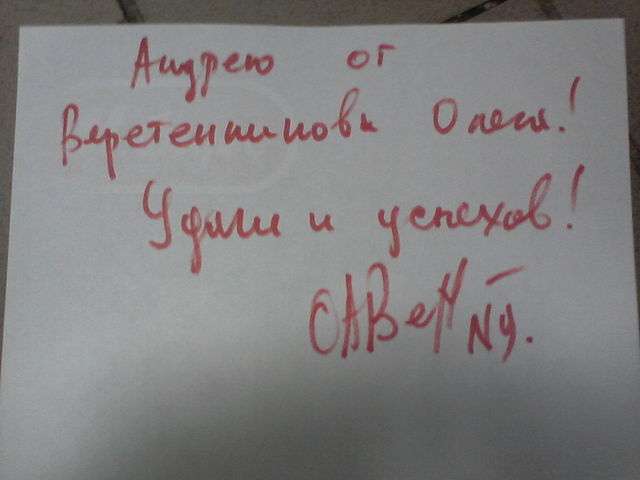 Андрею от
Веретенникова Олега!
Удачи и успехов!